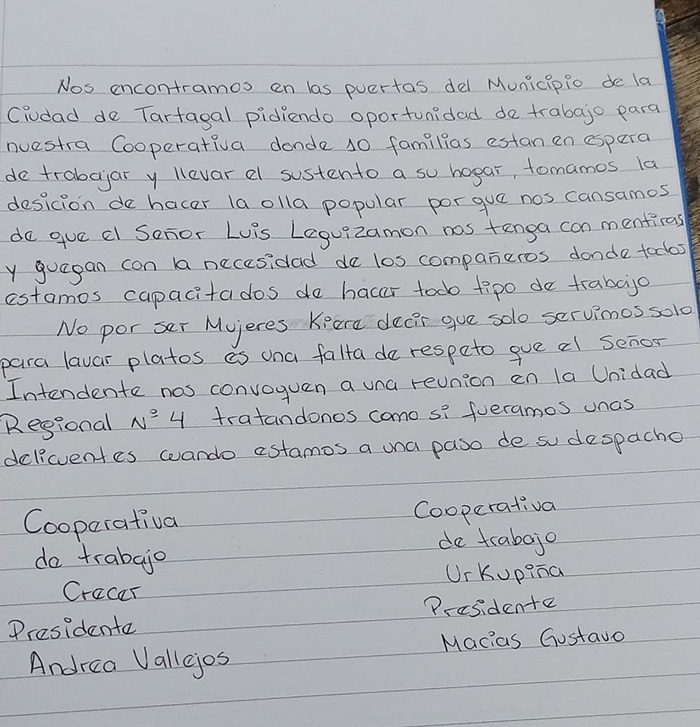 Nos encontramos en las puertas del Municipio de la
Ciudad de Tartagal pidiendo oportunidad de trabajo para
nuestra Cooperativa donde 10 familias estan en espera
de trabajar y llevar el sustento a su hogar, tomamos la
desición de hacer la olla popular por que nos cansamos
de que el Señor Luis Leguizamon nos tenga con mentiras
y guegan con la necesidad de los compañeros donde todos
estamos capacitados de hacer todo tipo de trabajo
No por ser Mujeres Kiere decir que solo servimos solo
para lavar platos es una falta de respeto que el Señor
Intendente nos convoquen a una reunion en la Unidad
Regional N° 4 tratandonos como si fueramos unas
delicuentes cuando estamos a una paso de su despacho
Cooperativa
de trabajo
Crecer
Presidente
Andrea Vallejos
Cooperativa
de trabajo
Urkupiña
Presidente
Macias Gustavo